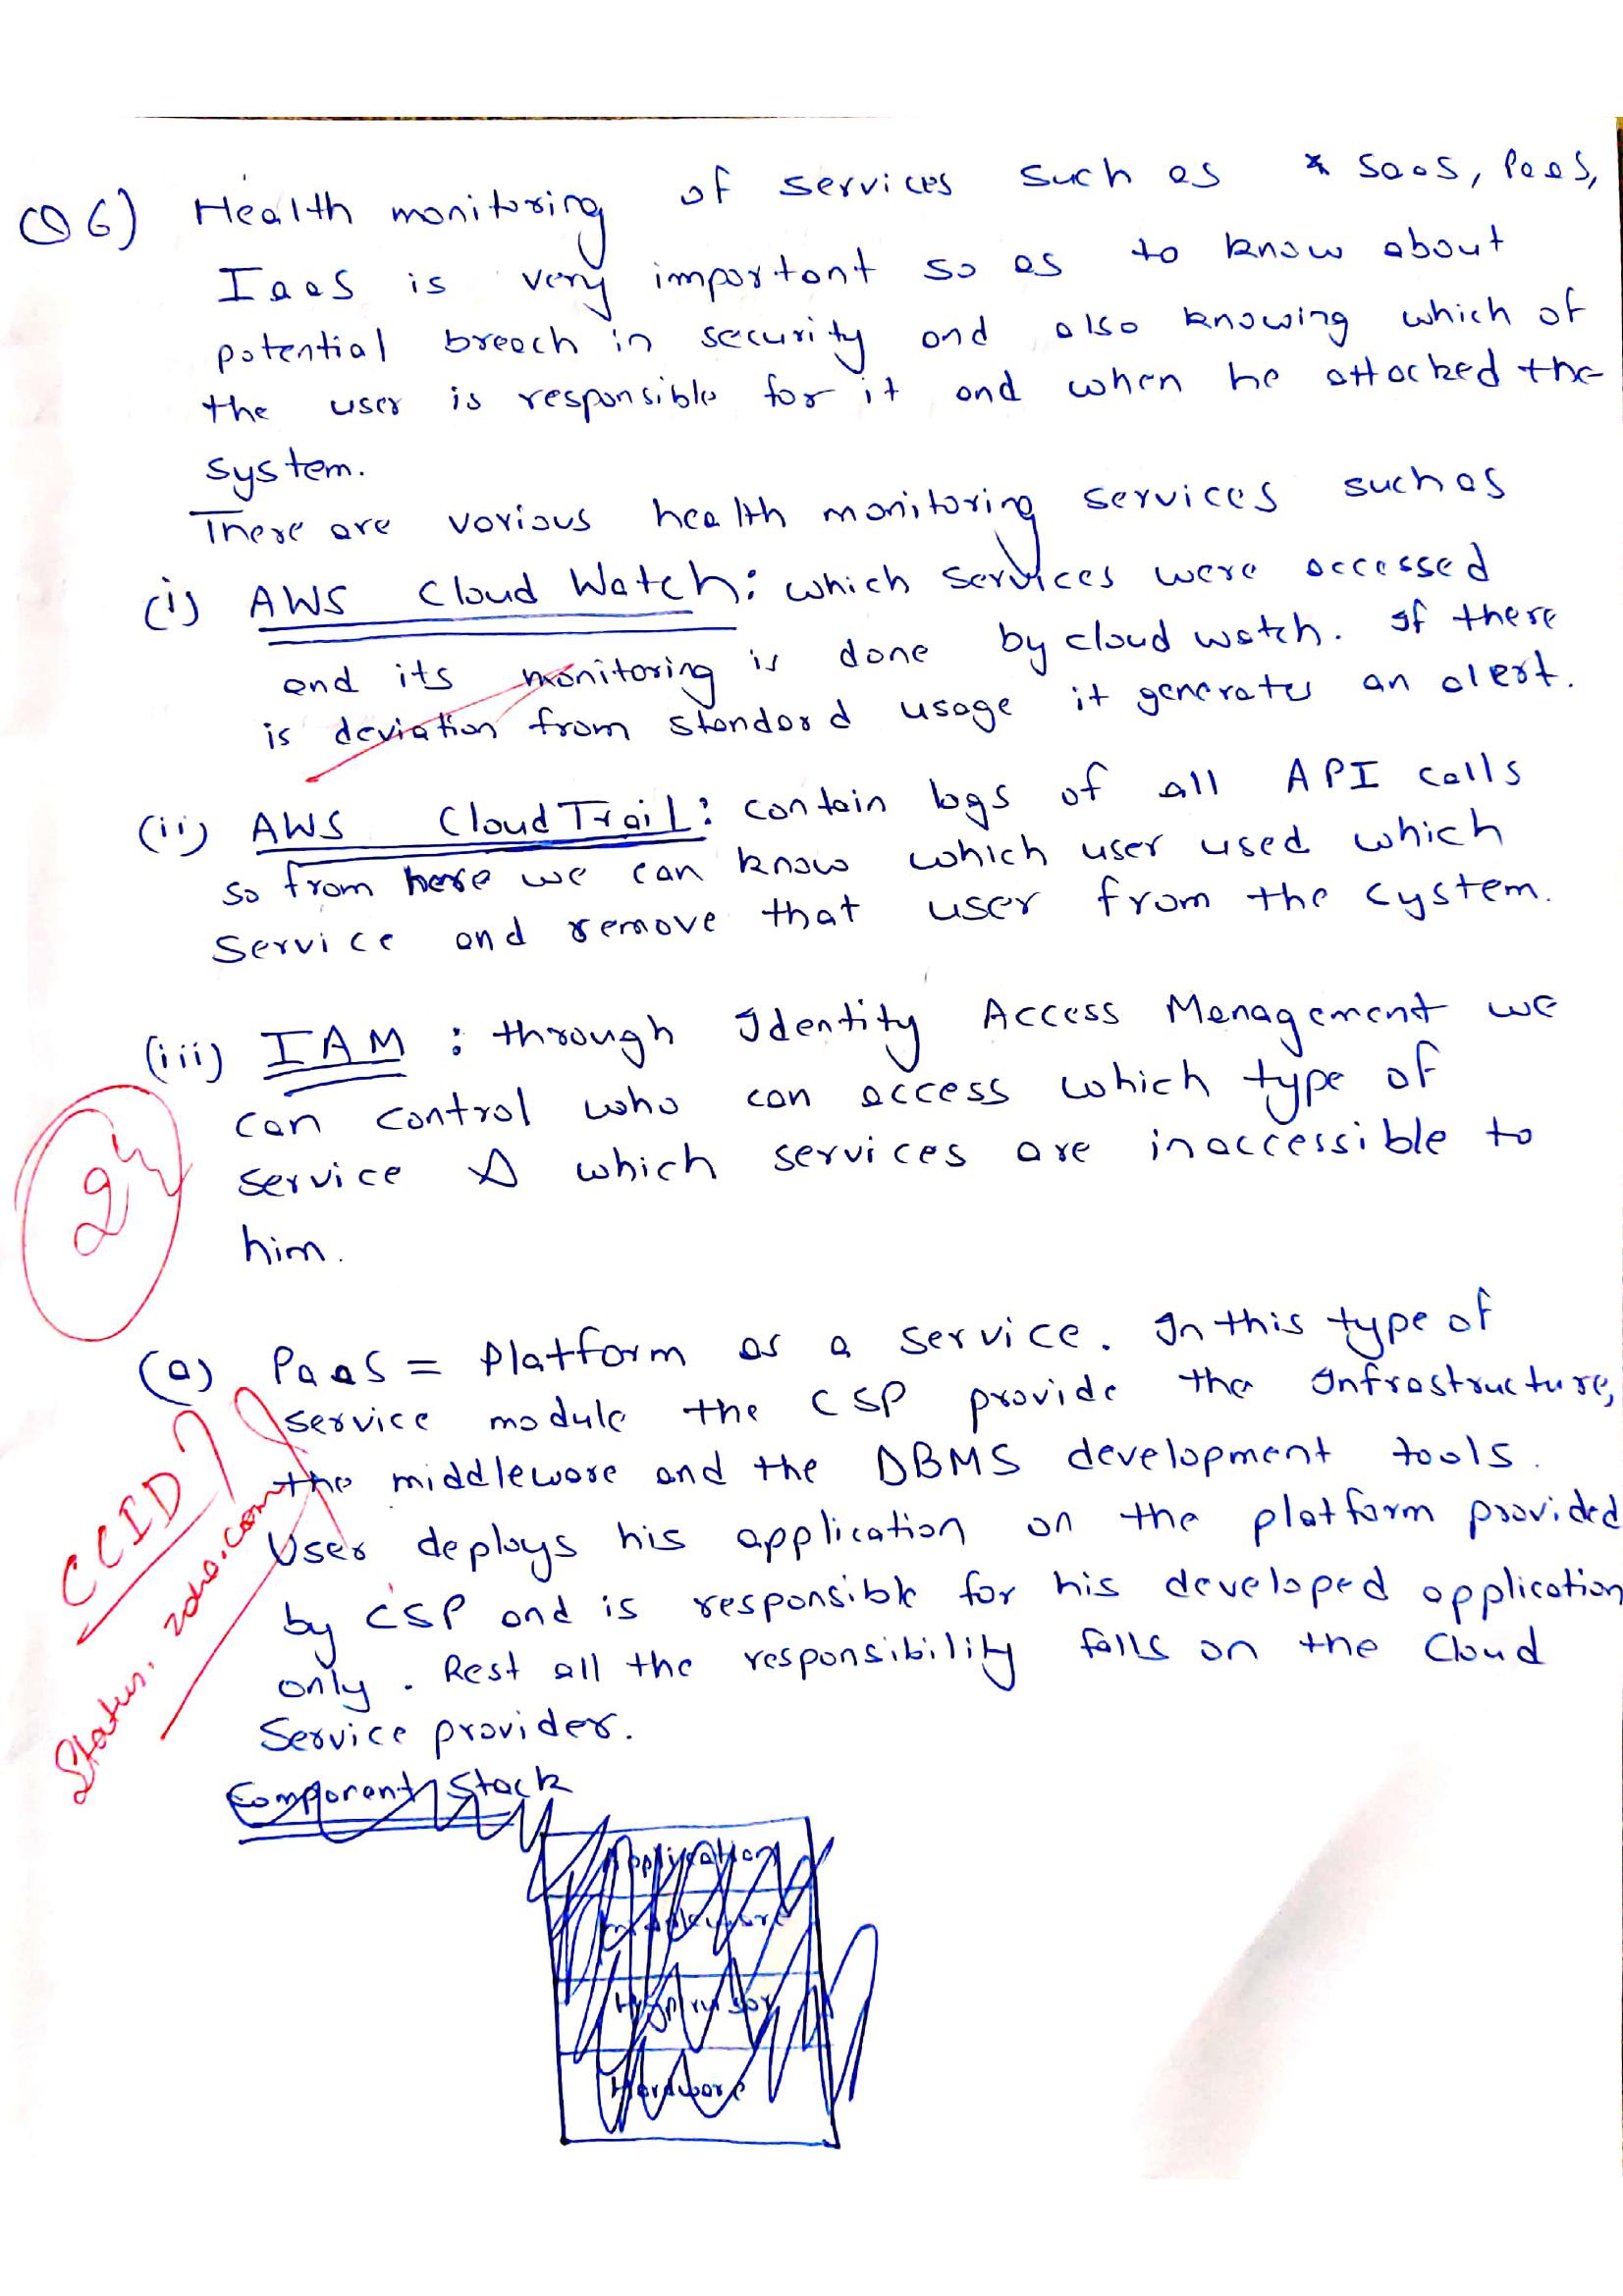 Q6) Health monitoring of services such as SaaS, PaaS,
IaaS is very important so as to know about
potential breach in security and also knowing which of
the user is responsible for it and when he attacked the
system.
There are various health monitoring services such as
(i) AWS Cloud Watch: which services were accessed
and its monitoring is done by cloud watch. If there
is deviation from standard usage it generates an alert.
(ii) AWS CloudTrail: contain logs of all API calls
so from here we can know which user used which
service and remove that user from the system.
(iii) IAM: through Identity Access Management we
can control who can access which type of
service & which services are inaccessible to
him.
2
(a) PaaS = Platform as a service. In this type of
service module the CSP provide the Infrastructure,
the middleware and the DBMS development tools.
User deploys his application on the platform provided
by CSP and is responsible for his developed application
only. Rest all the responsibility falls on the Cloud
Service provider.
CCID?
Status. zoho.com
Component Stack
Application
Middleware
Hypervisor
Hardware